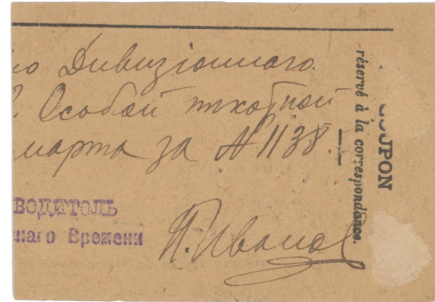 го Дивизіоннаго
Особой пѣхотной
марта за № 1138.
ВОДИТЕЛЬ
наго Времени
П. Иванов
COUPON
réservé à la correspondance.